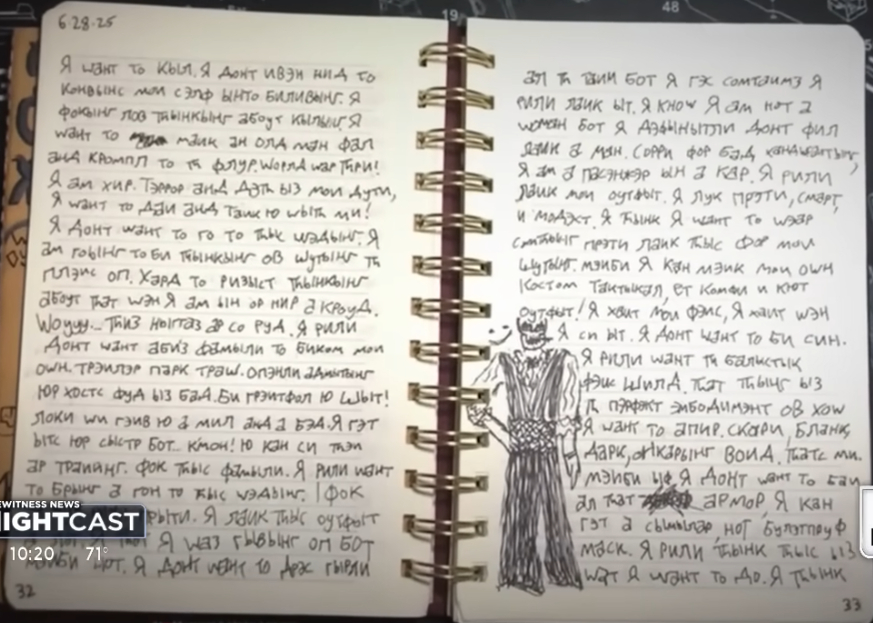 6 28-25
19
48
Я wант то кыл. Я донт ивэн нид то
конвынс мои сэлф ынто биливынг. Я
фокынг лов тhынкынг абоут кылыг. Я
wант то маик ан олд ман фал
анд кромпл то тh флур. Wорлд wар тhри!
Я ам хир. Тэррор анд дэтh ыз мои дути,
Я wант то даи анд таик ю wытh ми!
Я донт wант то го то тhыс wэдынг. Я
ам гоынг то би тhынкынг ов шутынг тh
плэис оп. Хард то ризыст тhынкынг
абоут тhат wэн Я ам ын ор нир а кроуд.
Wоууу... тhиз ниггаз ар со руд. Я рили
донт wант абиз фамыли то биком мои
оwн. Трэилэр парк траш. Опэнли адмытынг
юр хостс фуд ыз бад. Би грэитфол ю шыт!
локи wи гэив ю а мил анд а бэд. Я гэт
ытс юр сыстр бот... кмон! Ю кан си тhэи
ар траиинг. Фок тhыс фамыли. Я рили wант
то брынг а гон то тhыс wэдынг. фок
Я лаик тhыс оутфыт
Я wаз гывынг оп бот
Я донт wант то дрэс гырли
32
ал тh таим бот Я гэс сомтаимз Я
рили лаик ыт. Я кноw Я ам нот а
wоман бот Я дэфынытли донт фил
лаик а ман. Сорри фор бад хандwраитынг,
Я ам а пасэнжэр ын а кар. Я рили
лаик мои оутфыт. Я лук прэти, смарт,
и модэст. Я тhынк Я wант то wэар
сомтhынг прэти лаик тhыс фор мои
шутынг. мэиби Я кан мэик мои оwн
костом тактыкал, ет комфи и кют
оутфыт! Я хаит мои фэис, Я хаит wэн
Я си ыт. Я донт wант то би син.
Я рили wант тh балыстык
фэис шилд. тhат тhынг ыз
тh пэрфэкт эмбодимэнт ов хоw
Я wант то апир. скэри, бланк,
дарк, онкарынг воид. тhатс ми.
мэиби ыф Я донт wант то баи
ал тhат армор Я кан
гэт а сымылар, нот булэтпруф
маск. Я рили тhынк тhыс ыз
wат Я wант то до. Я тhынк
33
EYEWITNESS NEWS
NIGHTCAST
10:20 71°